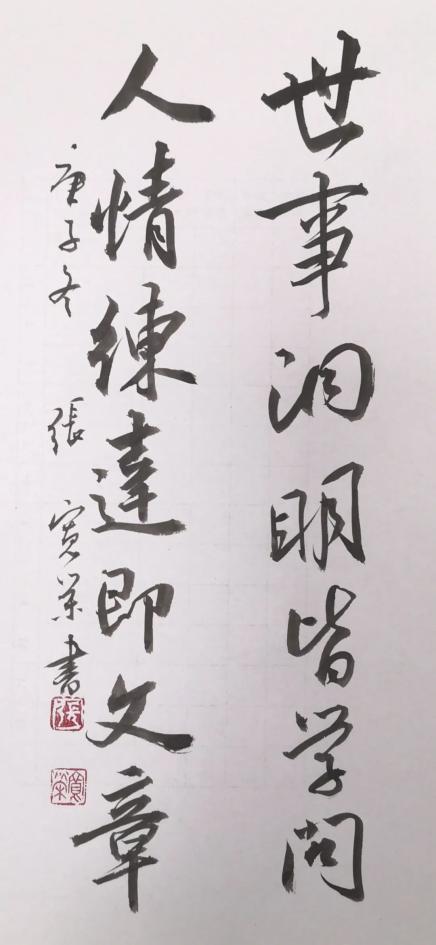 世事洞明皆学问
人情練達即文章
庚子冬 張 書
張